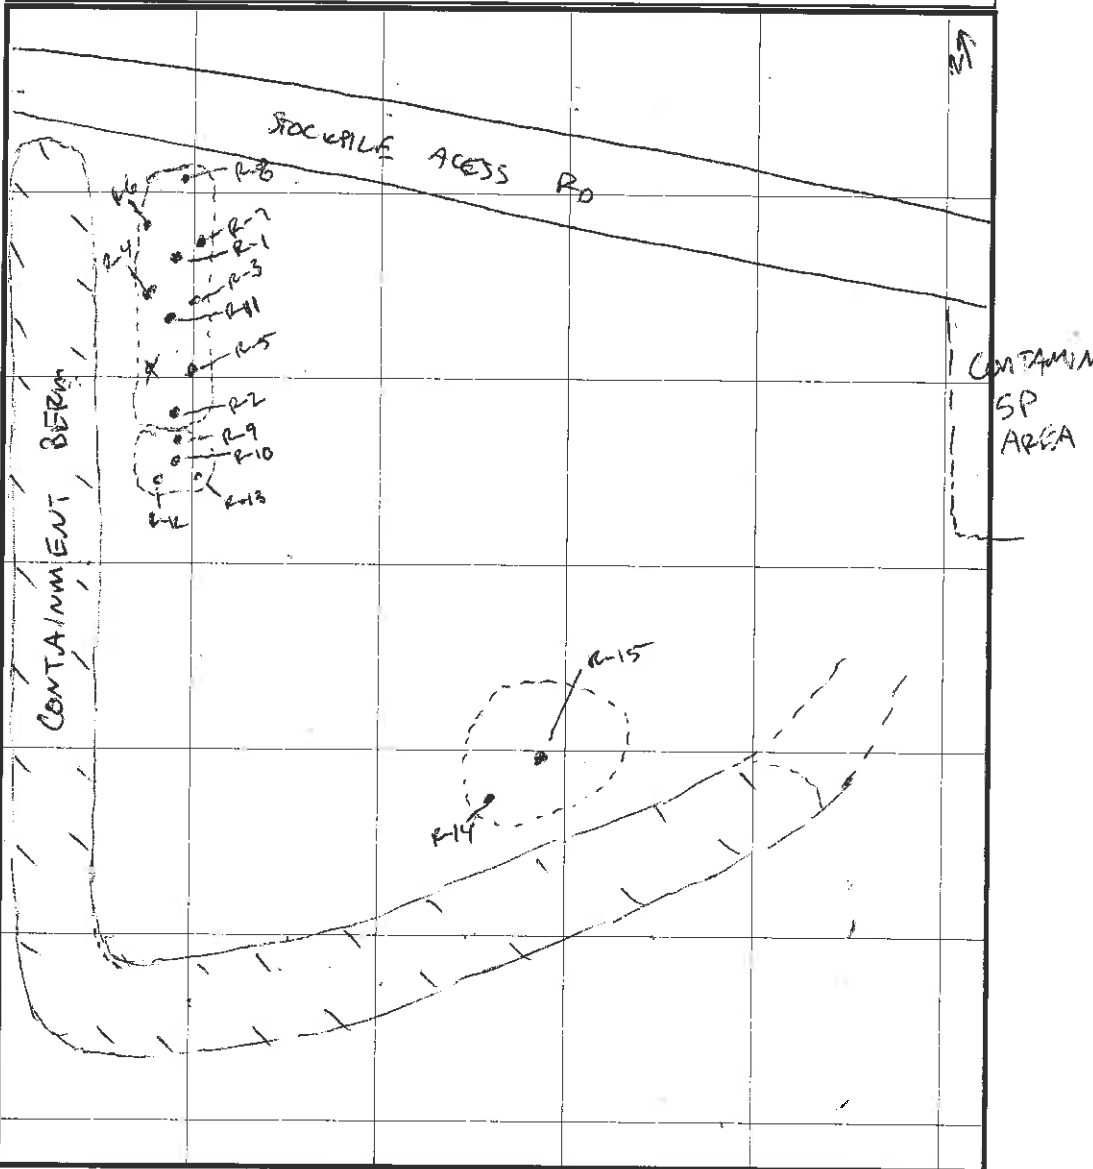 N
STOCKPILE ACESS RD
R-8
R-6
R-7
R-1
R-4
R-3
R-11
R-5
X
R-2
R-9
R-10
R-13
R-12
CONTAINMENT BERM
CONTAMIN
SP
AREA
R-15
R-14